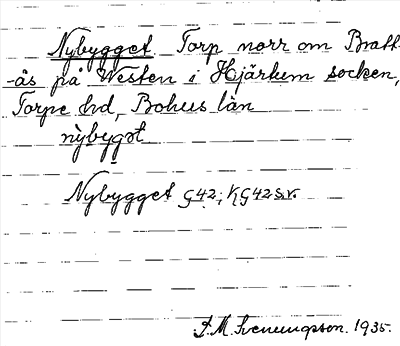 Nybygget. Torp norr om Bratt-
-ås på Westen i Hjärtum socken,
Torpe hd, Bohus län
nỳbygət
Nybygget G42; KG42 s.v.
S.M. Svenungsson. 1935.